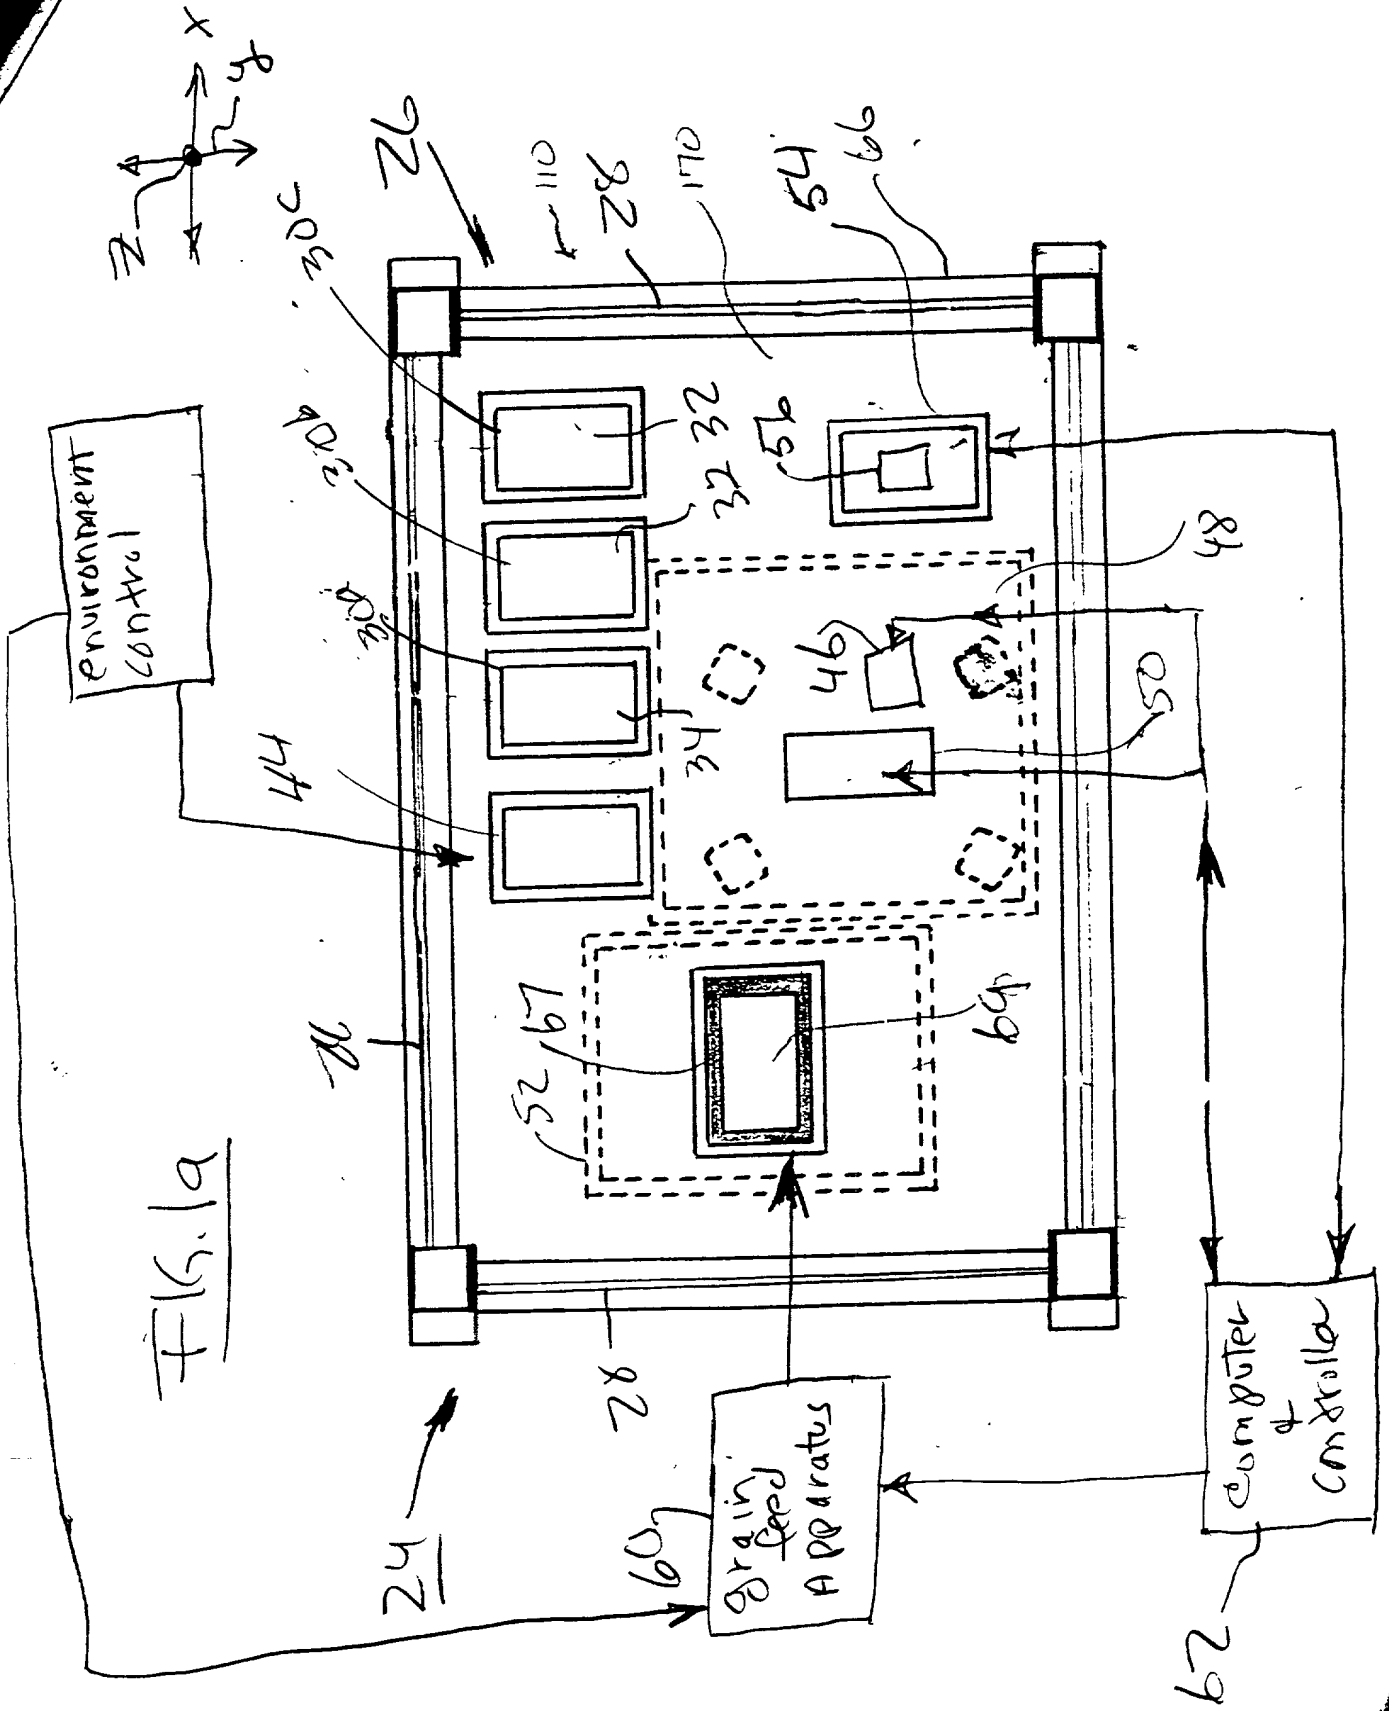 FIG. 1a
24
environment
control
z
x
y
26
110
28
170
54
66
30c
30b
30a
44
32
32
34
56
46
48
50
52
67
64
26
28
60
grain
feed
APParatus
62
computer
+
controller